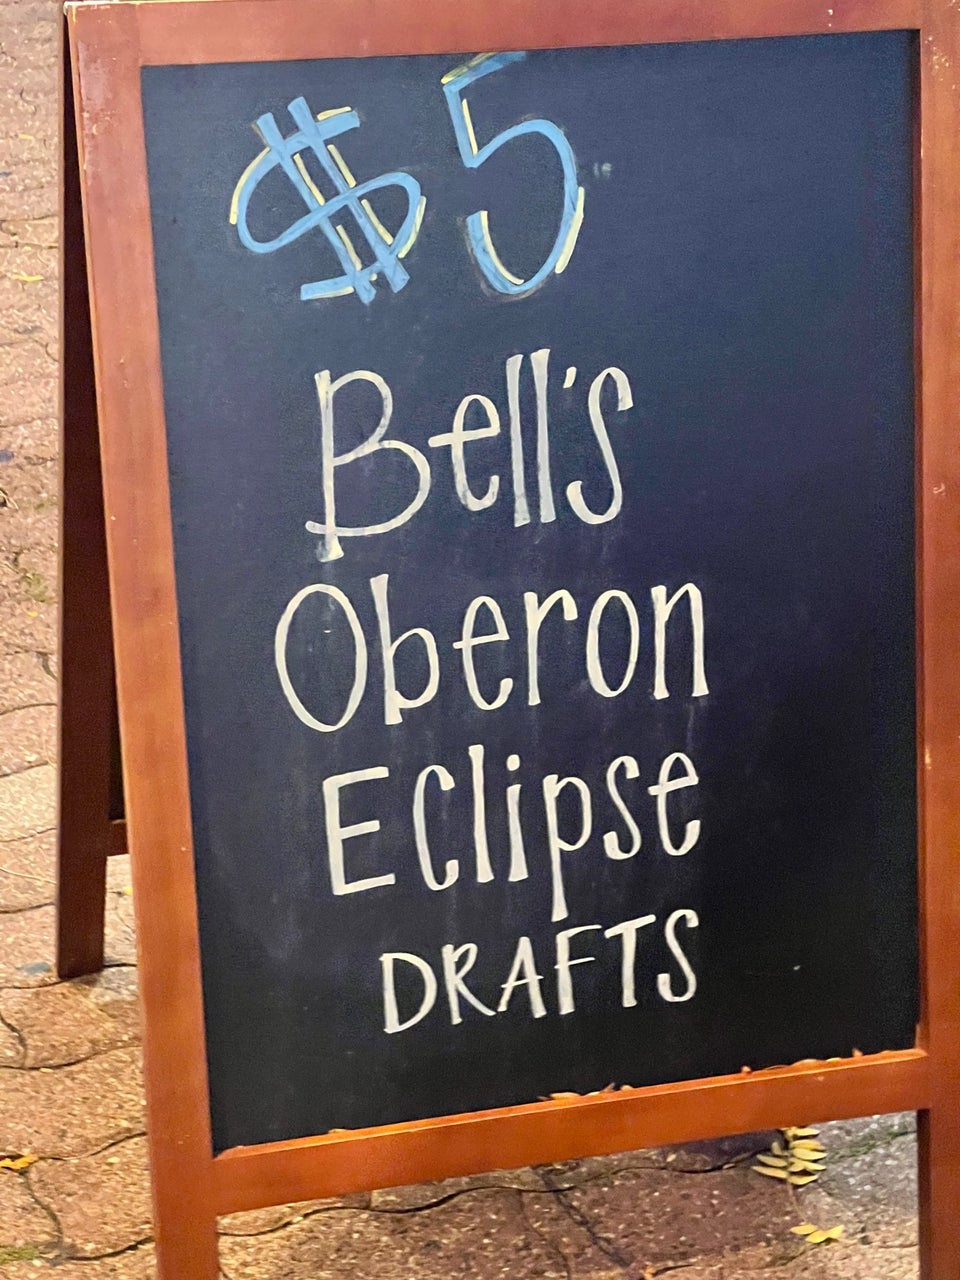 $5
Bell's
Oberon
Eclipse
DRAFTS